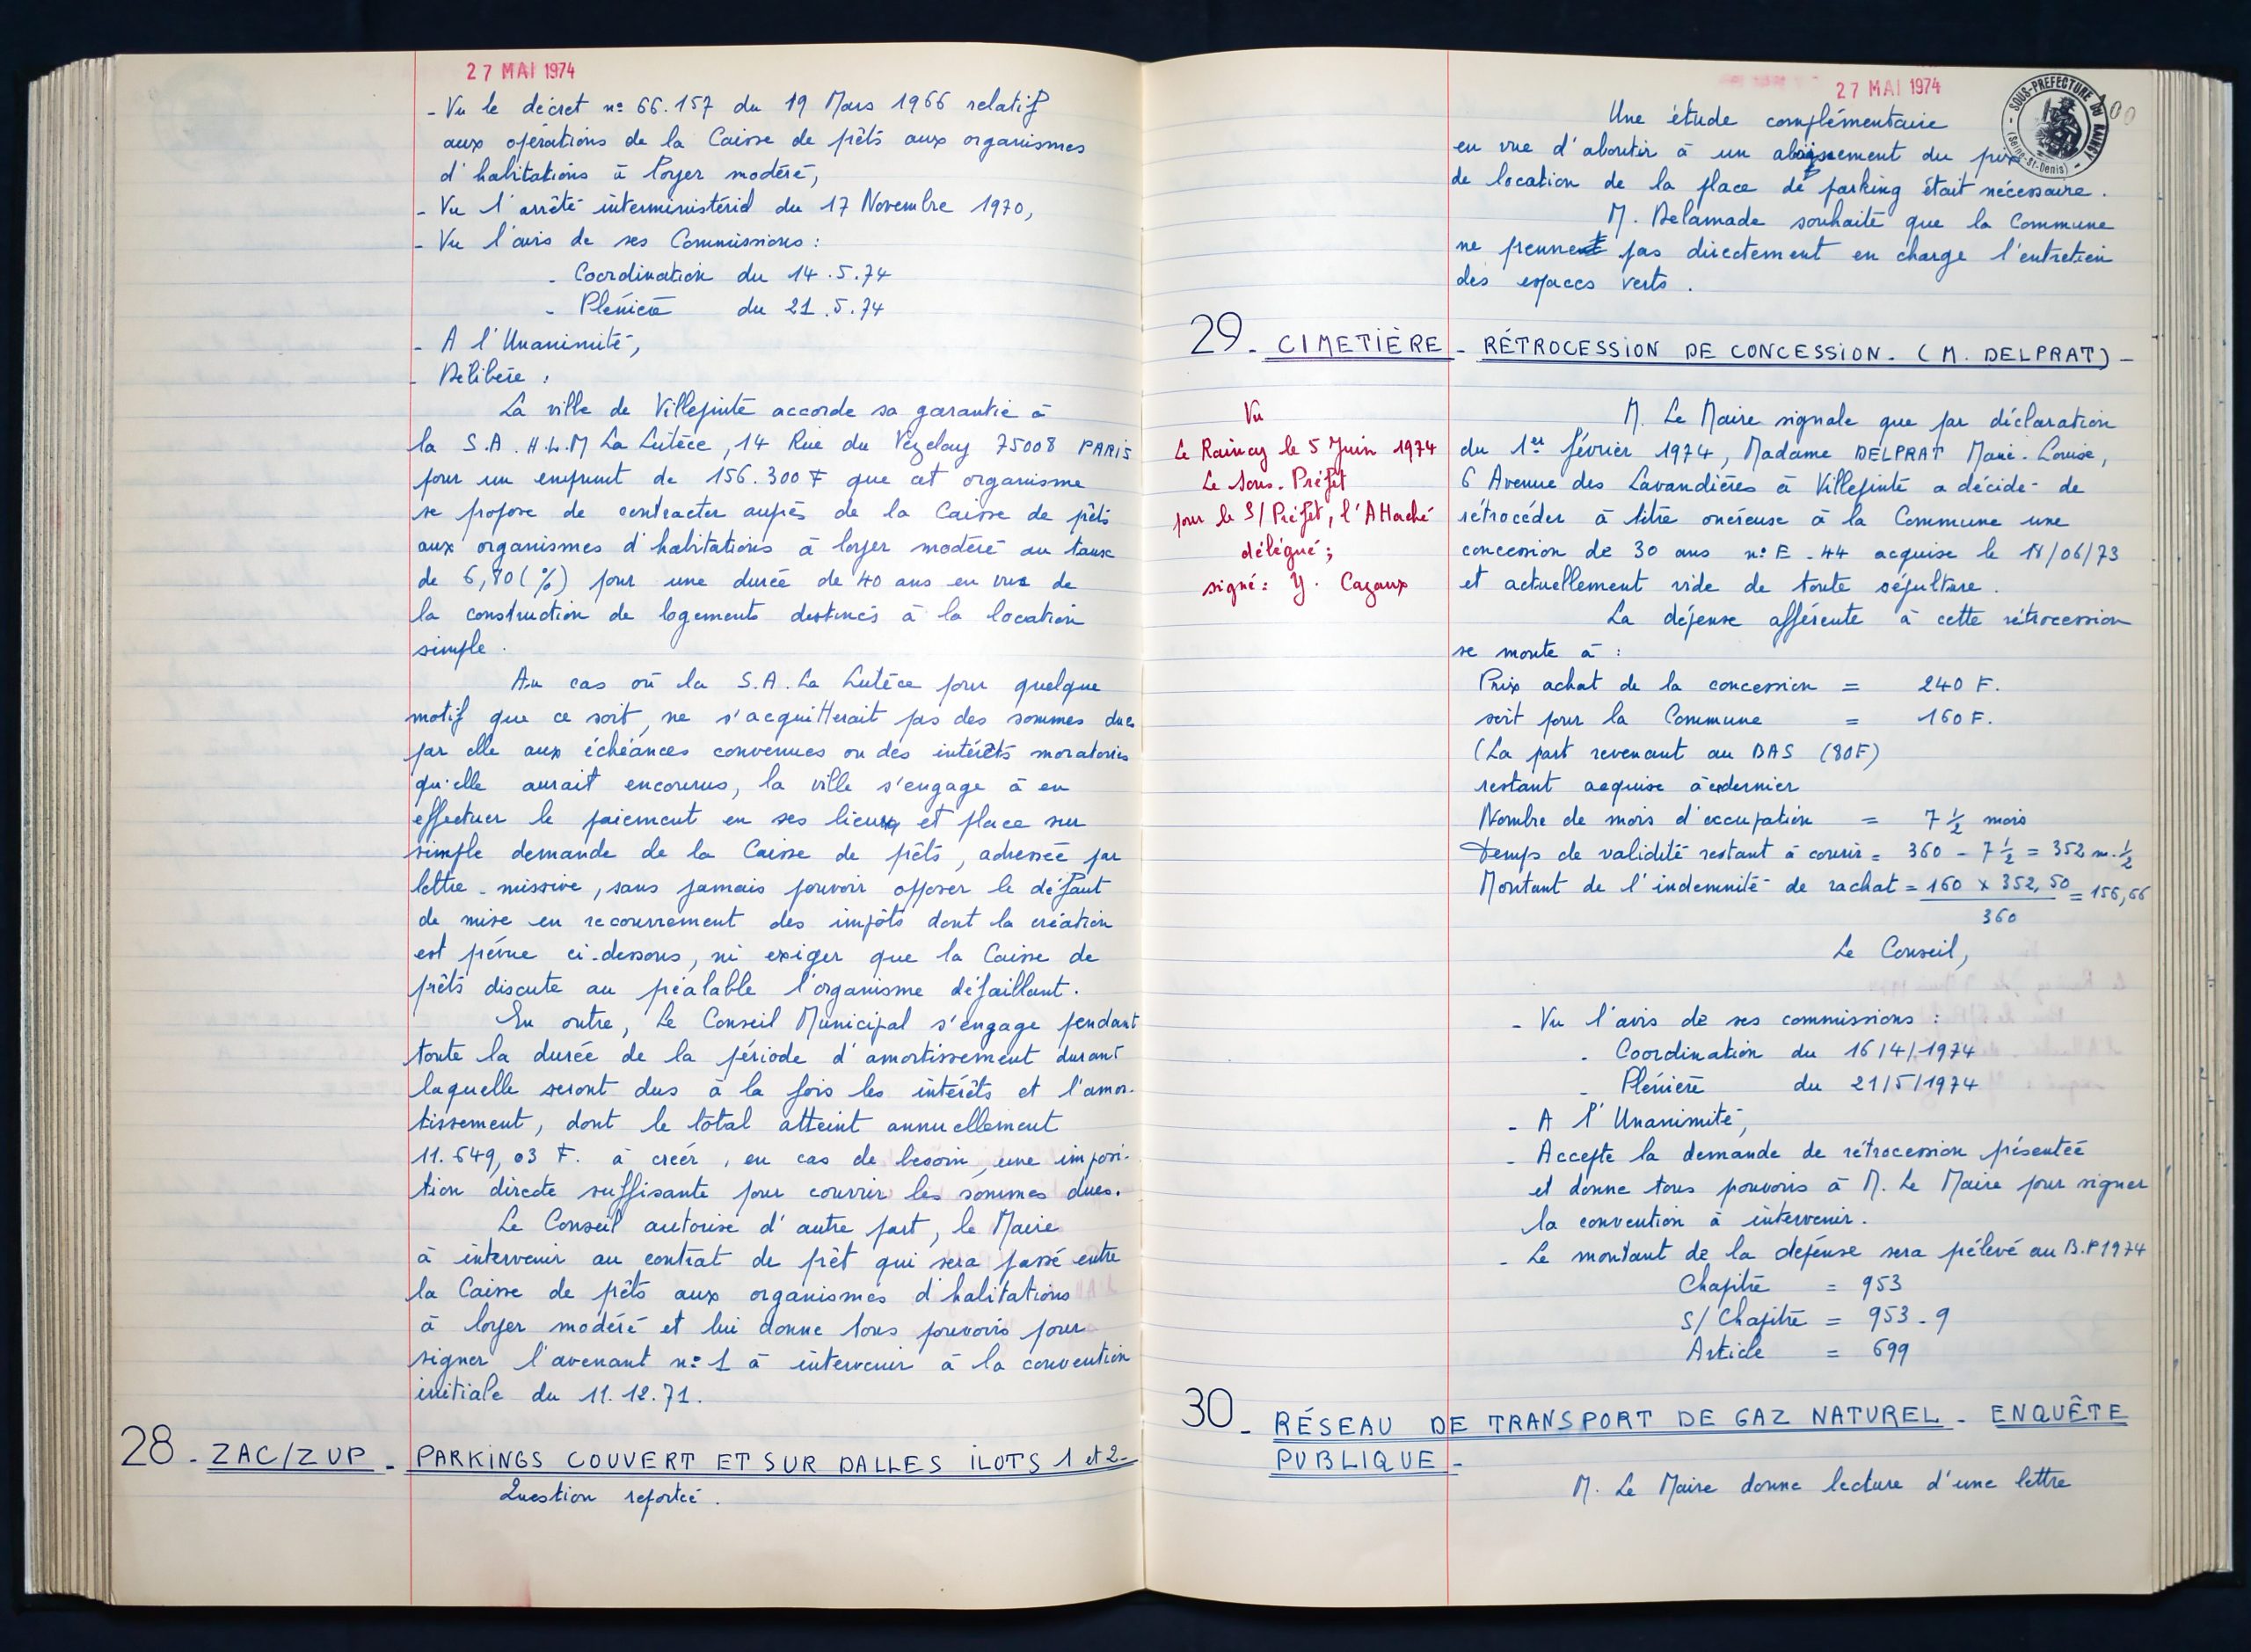 27 MAI 1974
- Vu le décret n° 66.157 du 19 Mars 1966 relatif
aux opérations de la Caisse de prêts aux organismes
d'habitations à loyer modéré,
- Vu l'arrêté interministériel du 17 Novembre 1970,
- Vu l'avis de ses Commissions :
- Coordination du 14.5.74
- Plénière du 21.5.74
- A l'Unanimité,
- Délibère :
La ville de Villepinte accorde sa garantie à
la S.A. H.L.M La Lutèce, 14 Rue du Vézelay 75008 PARIS
pour un emprunt de 156.300 F que cet organisme
se propose de contracter auprès de la Caisse de prêts
aux organismes d'habitations à loyer modéré au taux
de 6,80 (%) pour une durée de 40 ans en vue de
la construction de logements destinés à la location
simple.
Au cas où la S.A. La Lutèce pour quelque
motif que ce soit, ne s'acquitterait pas des sommes dues
par elle aux échéances convenues ou des intérêts moratoires
qu'elle aurait encourus, la ville s'engage à en
effectuer le paiement en ses lieux et place sur
simple demande de la Caisse de prêts, adressée par
lettre-missive, sans jamais pouvoir opposer le défaut
de mise en recouvrement des impôts dont la création
est prévue ci-dessous, ni exiger que la Caisse de
prêts discute au préalable l'organisme défaillant.
En outre, Le Conseil Municipal s'engage pendant
toute la durée de la période d'amortissement durant
laquelle seront dus à la fois les intérêts et l'amor-
tissement, dont le total atteint annuellement
11.649,03 F. à créer, en cas de besoin, une imposi-
tion directe suffisante pour couvrir les sommes dues.
Le Conseil autorise d'autre part, le Maire
à intervenir au contrat de prêt qui sera passé entre
la Caisse de prêts aux organismes d'habitations
à loyer modéré et lui donne tous pouvoirs pour
signer l'avenant n° 1 à intervenir à la convention
initiale du 11.12.71.
28 - ZAC/ZUP - PARKINGS COUVERT ET SUR DALLES ILOTS 1 et 2-
Question reportée.
27 MAI 1974
SOUS-PREFECTURE DU RAINCY (Seine-St-Denis)
Une étude complémentaire
en vue d'aboutir à un abaissement du prix
de location de la place de parking était nécessaire.
M. Delamade souhaite que la Commune
ne prenne pas directement en charge l'entretien
des espaces verts.
29 - CIMETIÈRE - RÉTROCESSION DE CONCESSION. (M. DELPRAT) -
Vu
Le Raincy le 5 Juin 1974
Le Sous-Préfet
pour le S/Préfet, l'Attaché
délégué ;
signé : Y. Cazaux
M. Le Maire signale que par déclaration
du 1er février 1974, Madame DELPRAT Marie-Louise,
6 Avenue des Lavandières à Villepinte a décidé de
rétrocéder à titre onéreuse à la Commune une
concession de 30 ans n° E-44 acquise le 18/06/73
et actuellement vide de toute sépulture.
La dépense afférente à cette rétrocession
se monte à :
Prix achat de la concession = 240 F.
soit pour la Commune = 160 F.
(La part revenant au BAS (80F)
restant acquise à ce dernier
Nombre de mois d'occupation = 7 ½ mois
Temps de validité restant à courir = 360 - 7 ½ = 352 m. ½
Montant de l'indemnité de rachat = 160 x 352,50 = 156,66
360
Le Conseil,
- Vu l'avis de ses commissions :
- Coordination du 16/4/1974
- Plénière du 21/5/1974
- A l'Unanimité,
- Accepte la demande de rétrocession présentée
et donne tous pouvoirs à M. Le Maire pour signer
la convention à intervenir.
- Le montant de la dépense sera prélevé au B.P 1974
Chapitre = 953
S/Chapitre = 953-9
Article = 699
30 - RÉSEAU DE TRANSPORT DE GAZ NATUREL - ENQUÊTE
PUBLIQUE -
M. Le Maire donne lecture d'une lettre